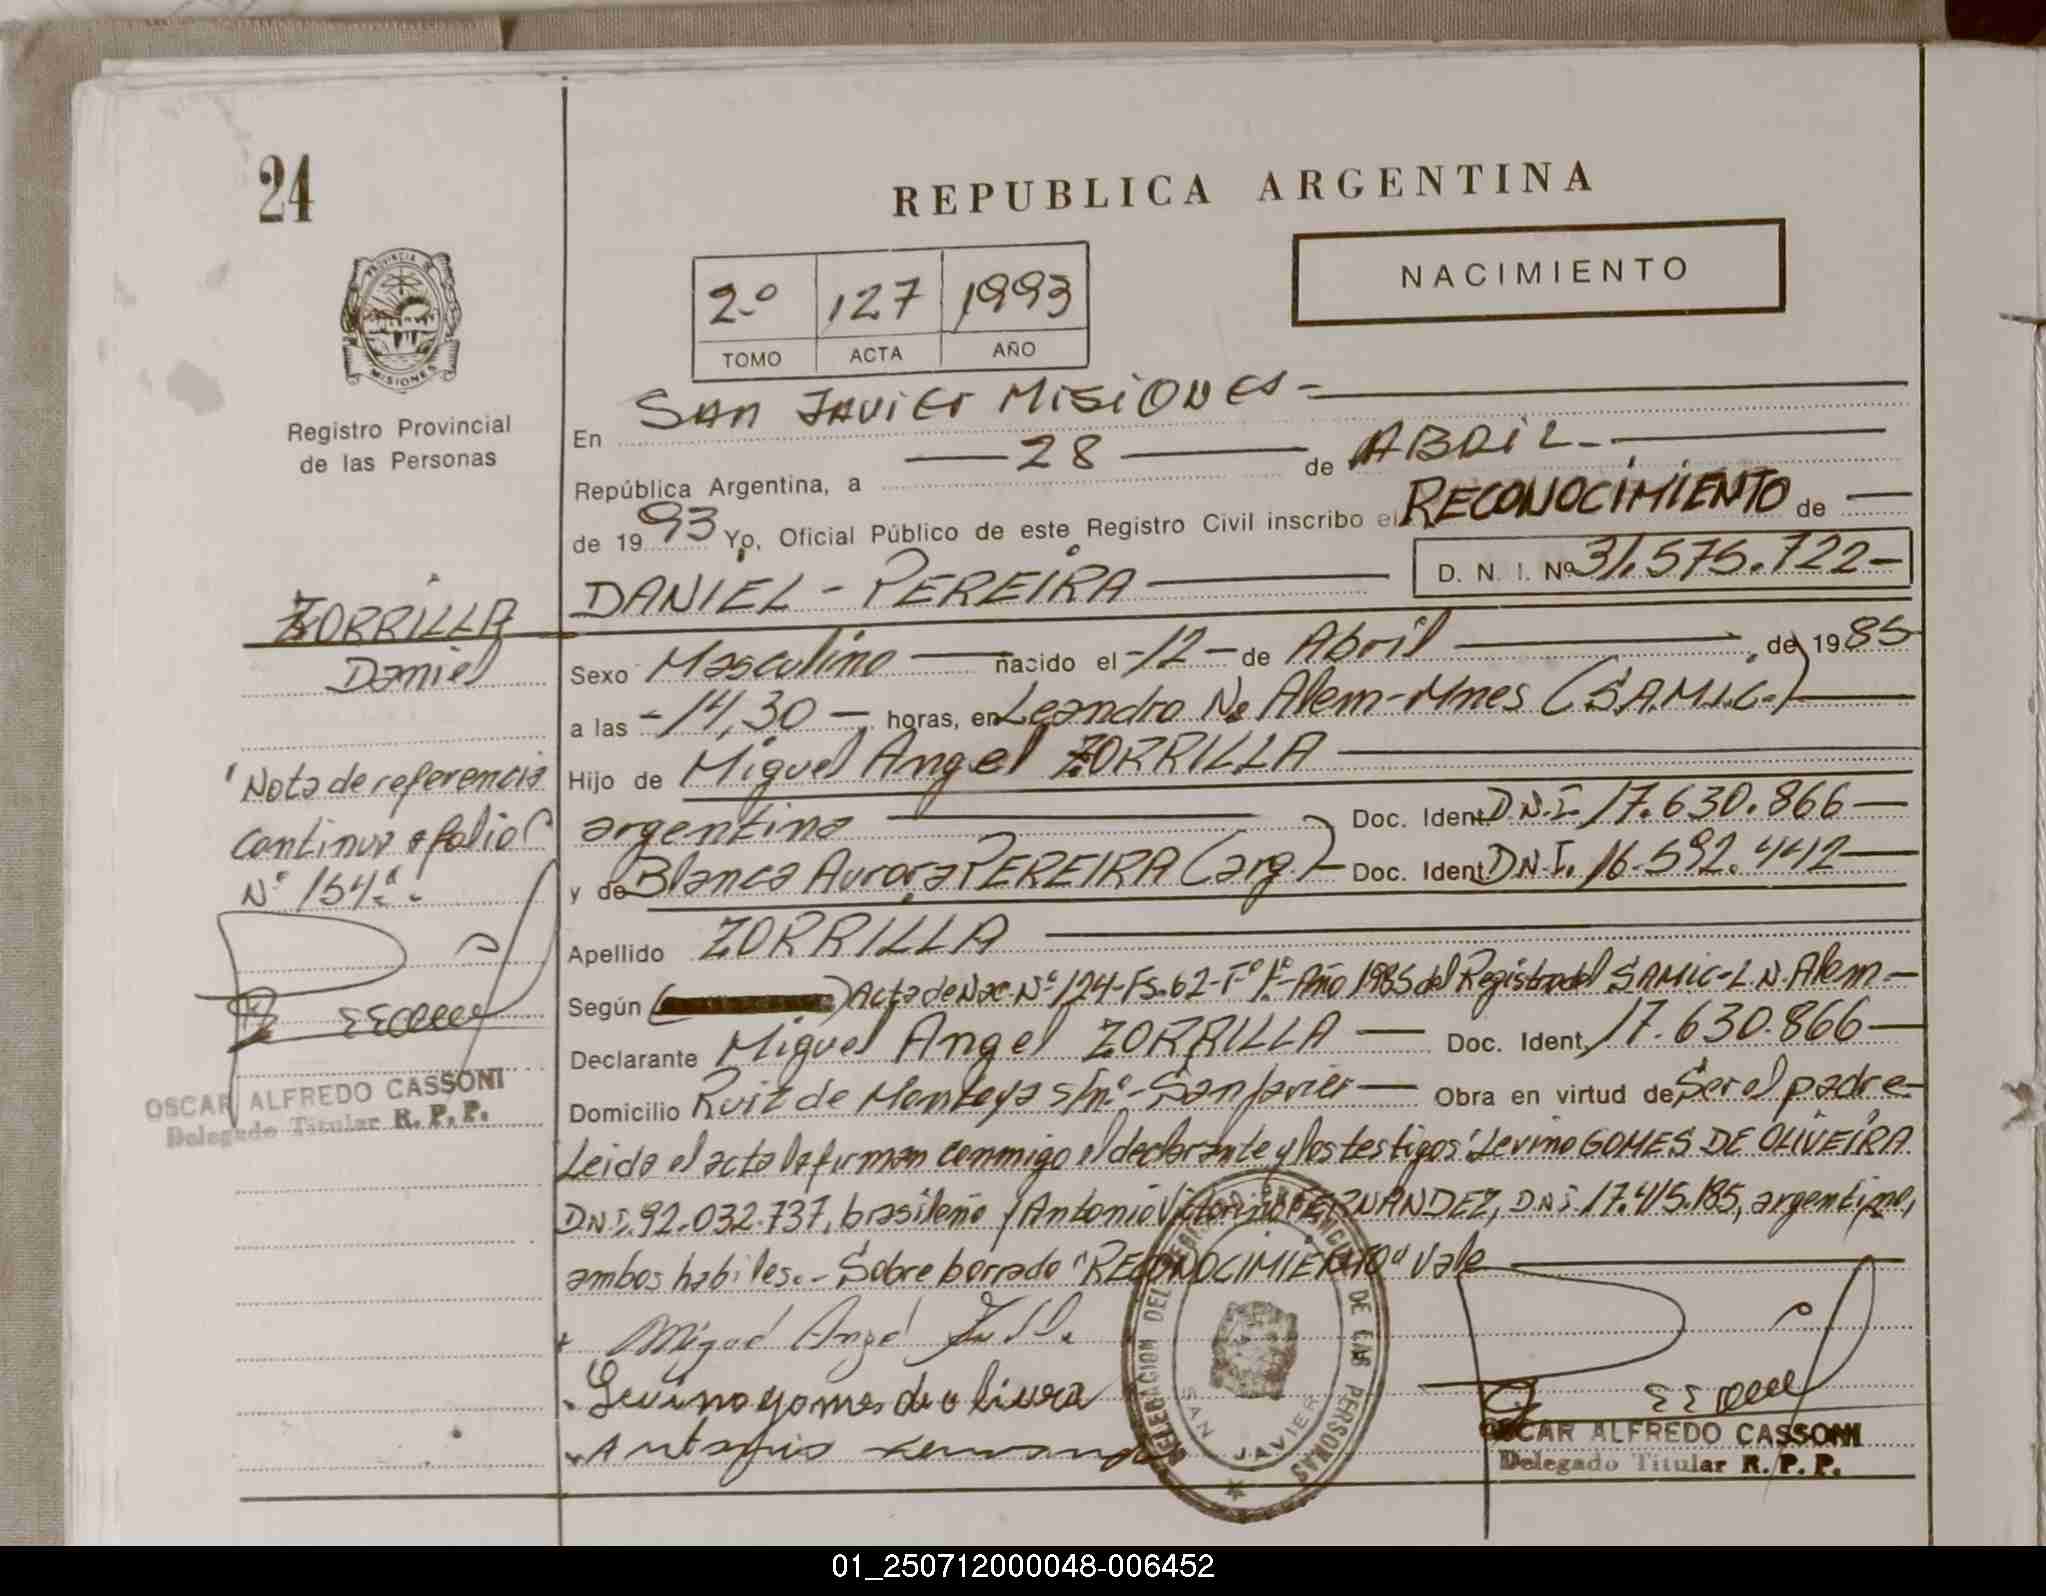 24
REPUBLICA ARGENTINA
NACIMIENTO
2º 127 1993
TOMO ACTA AÑO
PROVINCIA DE
MISIONES
Registro Provincial
de las Personas
En SAN JAVIER MISIONES-
República Argentina, a 28 de ABRIL-
de 1993 Yo, Oficial Público de este Registro Civil inscribo el RECONOCIMIENTO de
DANIEL - PEREIRA D. N. I. Nº 31.575.722-
ZORRILLA
Daniel
Sexo Masculino nacido el -12- de Abril de 1985
a las -14,30- horas, en Leandro N. Alem-Mnes (S.A.M.I.C.)
Hijo de Miguel Angel ZORRILLA
argentino Doc. Ident. D.N.I. 17.630.866
y de Blanca Aurora PEREIRA (arg.) Doc. Ident. D.N.I. 16.592.442
Apellido ZORRILLA
Según ( ) Acta de Nac. Nº 124-Fs.62-Tº 1º-Año 1985 del Registro del SAMIC-L.N.Alem-
Declarante Miguel Angel ZORRILLA Doc. Ident. 17.630.866
Domicilio Ruiz de Montoya s/nº- San Javier Obra en virtud de Ser el padre-
Leida el acta la firman conmigo el declarante y los testigos: Levino GOMES DE OLIVEIRA
DNI.92.032.737, brasileño y Antonio Victorino FERNANDEZ, DNI.17.415.185, argentino,
ambos habiles.- Sobre borrado "RECONOCIMIENTO" Vale
Nota de referencia
continua a folio
Nº 154
OSCAR ALFREDO CASSONI
Delegado Titular R. P. P.
Miguel Angel
Levino gomes de oliveira
Antonio
DELEGACION DEL REGISTRO PROVINCIAL DE LAS PERSONAS
SAN JAVIER
OSCAR ALFREDO CASSONI
Delegado Titular R. P. P.
01_250712000048-006452